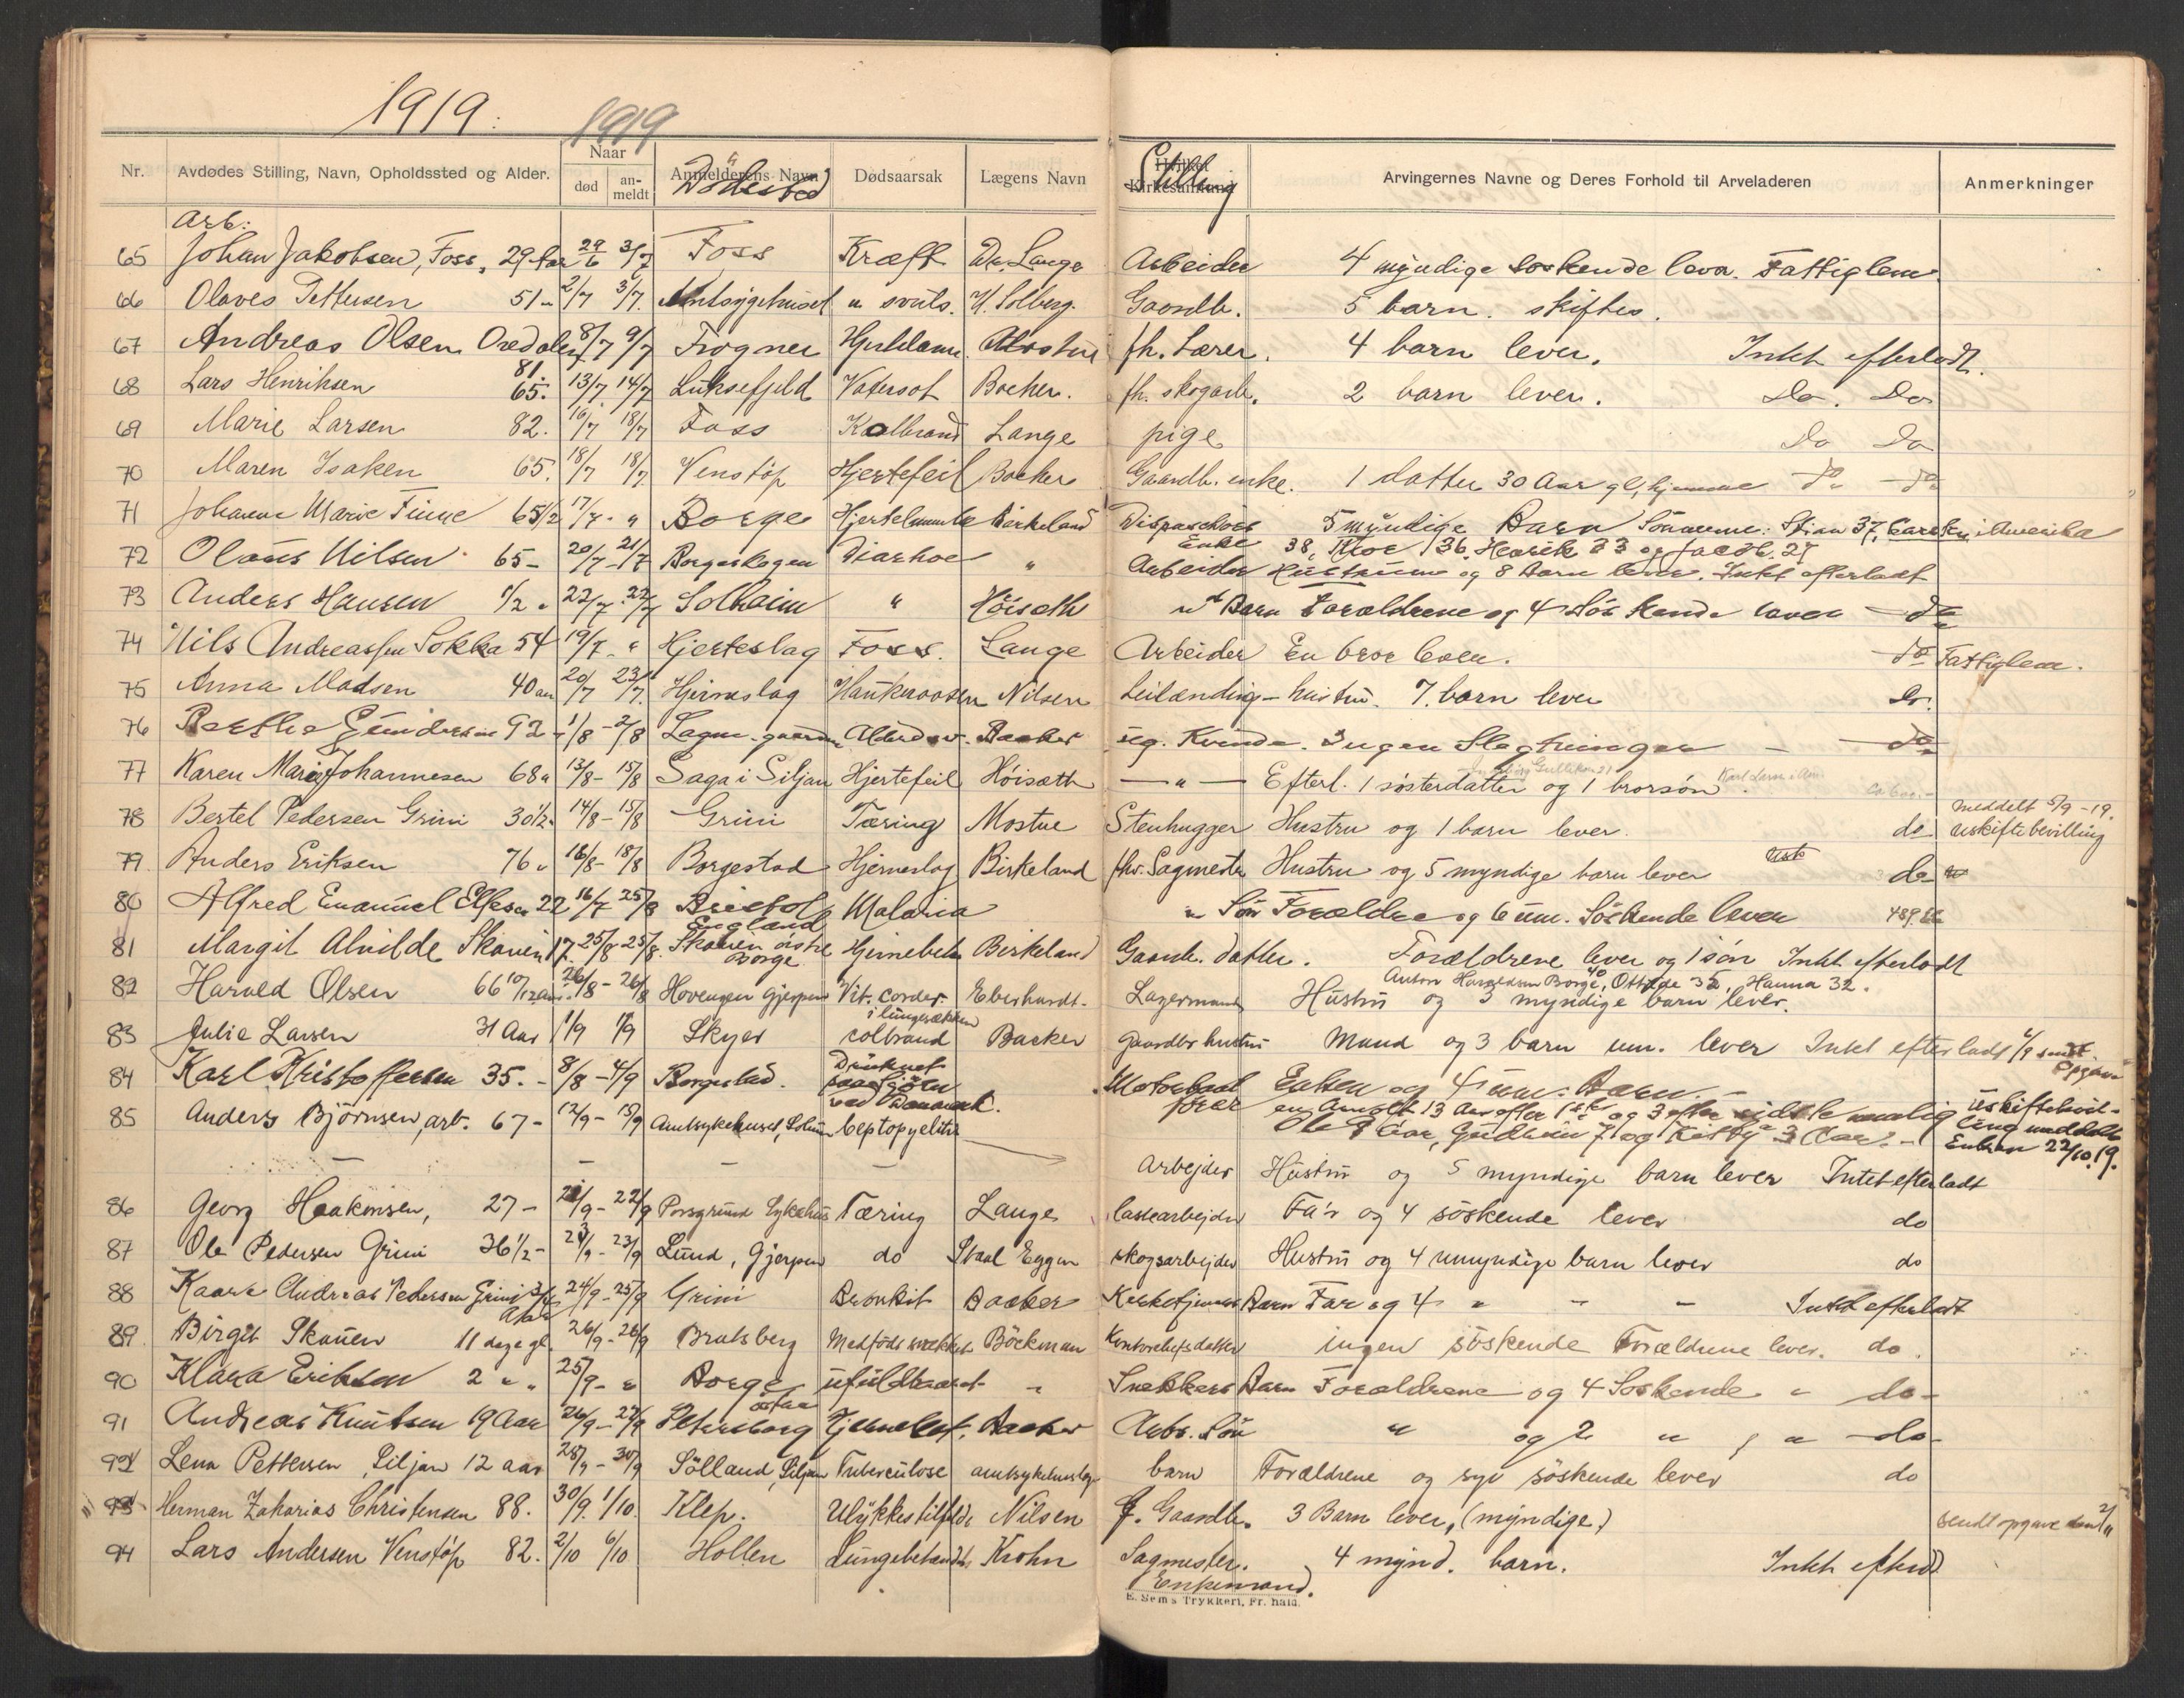 1919.
1919
Nr.
Avdødes Stilling, Navn, Opholdssted og Alder.
Naar
død
an-
meldt
Anmelderens Navn
Dödested
Dødsaarsak
Lægens Navn
Stilling
Arvingernes Navne og Deres Forhold til Arveladeren
Anmerkninger
Arb:
65 Johan Jakobsen, Foss, 29 Aar 29/6 3/7 Foss Kræft Dr. Lange Arbeider 4 myndige søskende lever. Fattiglem.
66 Olaves Pettersen 51 " 2/7 3/7. Amtsygehuset " svuls. H. Solberg. Gaardb. 5 barn. skiftes.
67 Andreas Olsen Oredalen 8/7 9/7 Frogner Mostue fh. Lærer. 4 barn lever. Intet efterladt.
81.
68 Lars Henriksen 65. 13/7 14/7 Luksefjeld Vatersot Backer. fh. skogarb. 2 barn lever. Do. Do
69 Marie Larsen 82. 16/7 18/7 Foss Kolbrand Lange pige Do Do
70 Maren Isaken 65. 18/7 18/7 Venstöp Hjertefeil Backer Gaardb. enke. 1 datter 30 Aar gl, hjemme do do
71 Johanne Marie Finne 65 1/2 17/7 - " Borge Hjertelammelse Birkeland Dispaschörs 5 myndige Barn Sönnerne: Stian 37, Carsten i Amerika
Enke 38, Thor 36. Henrik 33 og Jacob. 27
72 Olaus Nilsen 65 - 20/7 - 21/7 Borgeskogen Diarhoe " Arbeider Hustruen og 8 Barn lever. Intet efterladt
73 Anders Hansen 1/2 " 22/7. 22/7 Solheim " Höisæth Barn Forældrene og 4 Söskende lever do
74 Nils Andreassen Sokka 54 19/7. " Hjerteslag Foss. Lange Arbeider En bror lever. do Fattiglem.
75 Anna Madsen 40 aar 20/7 23/7. Hjerneslag Haukeraasen Nilsen Leilænding - hustru. 7. barn lever do.
76 Berthe Gundersen 92 - 1/8 - 2/8 Backer ug. Kvinde. Ingen Slegtninger - do
77 Karen Marie Johannesen 68 " 13/8 - 15/8 Saga i Siljan Hjertefeil Höisæth - " - Efterl. 1 søsterdatter og 1 brorsøn.
meddelt 5/9 - 19.
78 Bertel Pedersen Grini 30 1/2 " 14/8 - 15/8 Grini Tæring Mostue Stenhugger Hustru og 1 barn lever. do uskiftebevilling
79. Anders Eriksen 76 " 16/8 - 18/8 Borgestad Hjerneslag Birkeland fhv. Sagmester Hustru og 5 myndige barn lever do
80 Alfred Emanuel Elfesen 22 16/7 25/8 Bristol Malaria " Sön Forældre og 6 um. Söskende lever
England
81 Margit Alvilde Skauen 17. 25/8 25/8. Skauen östre Hjernebet. Birkeland Gaardb. datter. Forældrene lever og 1 sön Intet efterladt
Borge
Anton Haraldsen Borge, 40 Ottilde 35, Hanna 32.
82 Harald Olsen 66 10/12 aar. 26/8 - 26/8 Hovengen Gjerpen Vit. cordes. Eberhardt. Lagermand Hustru og 3 myndige barn lever.
83 Julie Larsen 31 Aar 1/9 1/9 Skyer colbrand Backer gaardbr hustru Mand og 3 barn um. lever Intet efterladt
84 Karl Kristoffersen 35. - 8/8 - 4/9 Borgestad. Druknet Motorbaat Enken og 4 um. Barn. -
ved Danmark.
fører
en Arnolt 13 Aar efter 1ste og 3 efter sidste nemlig
Ole 9 Aar, Gudrun 7 og Kitty 3 Aar. -
Uskiftebevil-
ling meddelt
Enken 22/10.19.
85 Anders Björnsen, arb. 67 - 12/9 - 15/9 Amtsykehuset, Solum Arbejder Hustru og 5 myndige barn lever Intet efterladt
86 Georg Haakonsen, 27 - 21/9 - 22/9 Porsgrund Sykehus Tæring Lange lastearbejder Far og 4 söskende lever do
87 Ole Pedersen Grini 36 1/2 - 23/9 - 23/9 Lund, Gjerpen do Staal Eggen skogsarbejder Hustru og 4 umyndige barn lever do
88 Kaare Andreas Pedersen Grini 24/9 - 25/9 Grini Bronkit Backer Kirketjeners Barn Far og 4 " " " Intet efterladt
89 Birgit Skauen 11 dage gl. 26/9 - 26/9 Bratsberg Medfödt svækket Böckman Kontorchefsdatter ingen söskende Forældrene lever. do.
90 Klara Eriksen 2 " " 25/9 - " Borge ufuldbaaret " Snekkers Barn Forældrene og 4 Söskende " do -
östre
91 Andreas Knutsen 19 Aar 26/9 - 27/9 Petersborg Backer Arb. Sön " og 2 " " do -
92 Lena Pettersen Siljan 12 aar 28/9 - 30/9 Sölland, Siljan Tuberculose amtsykehuslege barn Forældrene og syv söskende lever do
93 Herman Zakarias Christensen 88. 30/9. 1/10. Klep. Ulykkestilfelde Nilsen f. Gaardb. 3 Barn lever, (myndige) sendt opgave den 2/11
94 Lars Andersen Venstöp 82. 2/10 6/10 Hollen Lungebetændels Krohn Sagmester. 4 mynd. barn. Intet efterladt
Enkemand.
E. Sems Trykkeri, Fr.hald.